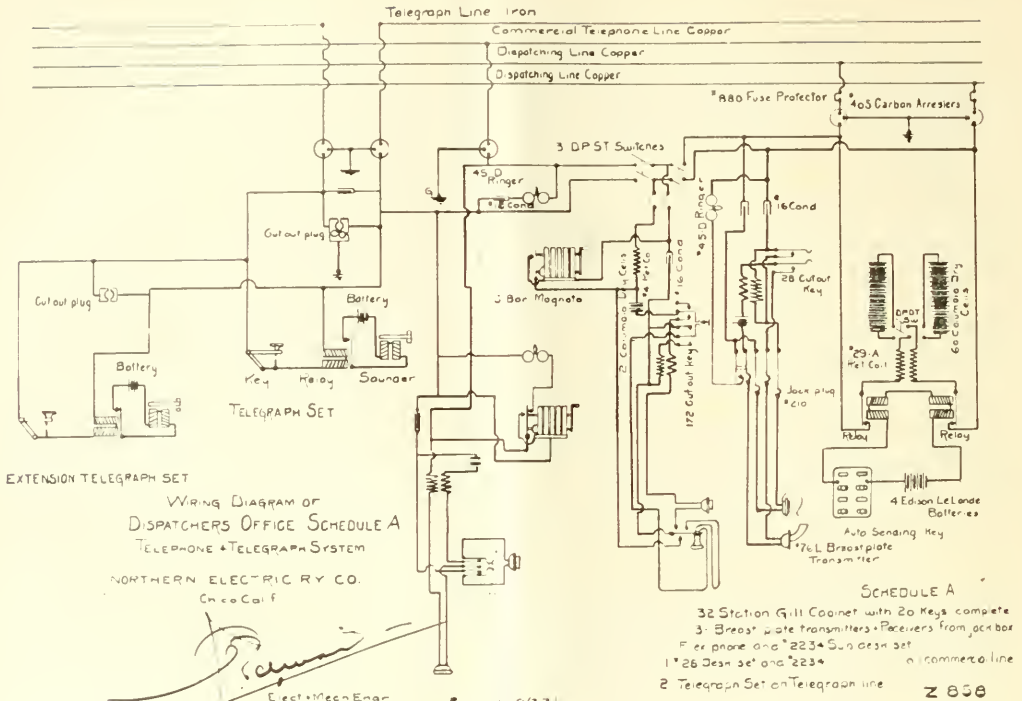 Telegraph Line Iron
Commercial Telephone Line Copper
Dispatching Line Copper
Dispatching Line Copper
#880 Fuse Protector
#40S Carbon Arresters
3 DPST Switches
45 D Ringer
G
Cond
#45 D Ringer
#16 Cond
#16 Cond
Cut out plug
Cut out plug
Battery
Battery
Key
Relay
Sounder
TELEGRAPH SET
EXTENSION TELEGRAPH SET
Bar Magneto
2 Columbia Cells
172 Cutout Key
28 Cutout Key
Jack plug
#210
DPDT
60 Columbia Dry Cells
#29-A
Ret Coil
Relay
Relay
4 Edison LeLande
Batteries
Auto Sending Key
#76L Breastplate
Transmitter
WIRING DIAGRAM OF
DISPATCHERS OFFICE SCHEDULE A
TELEPHONE + TELEGRAPH SYSTEM
NORTHERN ELECTRIC RY CO.
Chico Calif
Elect + Mech Engr
SCHEDULE A
32 Station Gill Cabinet with 20 Keys complete
3- Breast plate transmitters + Receivers from jack box
phone and #2234 set
1 #26 Desk set and #2234 line
2 Telegraph Set on Telegraph line
Z 858